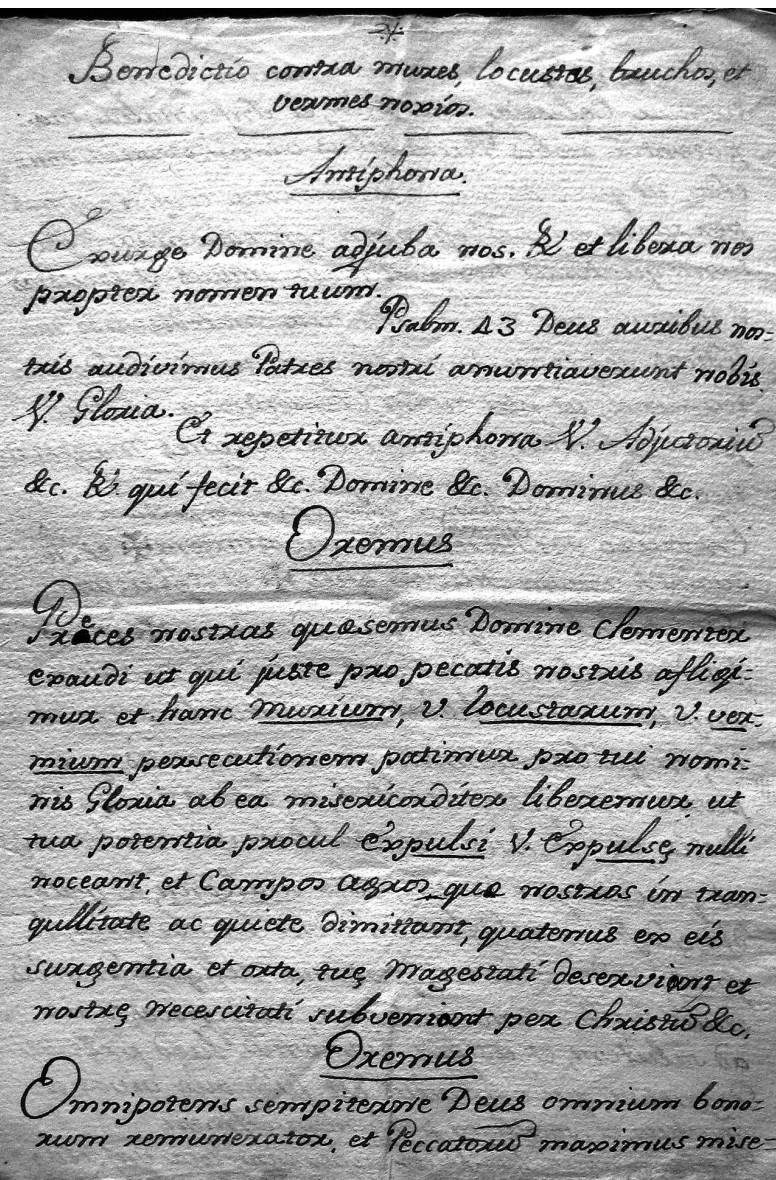 Benedictio contra mures, locustas, bruchos, et
vermes noxios.
Antiphona.
Exurge Domine adjuba nos. ℟ et libera nos
propter nomen tuum.
Psalm. 43 Deus auribus nos-
tris audivimus Patres nostri anuntiaverunt nobis.
℣. Gloria.
Et repetitur antiphona ℣. Adjutoriũ
&c. ℟. qui fecit &c. Domine &c. Dominus &c.
Oremus
Preces nostras quæsemus Domine clementer
exaudi ut qui juste pro pecatis nostris afligi-
mur et hanc murium, v. locustarum, v. ver-
mium persecutionem patimur pro tui nomi-
nis Gloria ab ea misericorditer liberemur ut
tua potentia procul expulsi v. Expulsę nulli
noceant, et Campos agros que nostros in tran-
qullitate ac quiete dimittant, quatenus ex eis
surgentia et orta, tuę Magestati deserviant et
nostrę necescitati subveniant per Christũ &c.
Oremus
Omnipotens sempiterne Deus omnium bono-
rum remunerator, et Peccatorũ maximus mise-